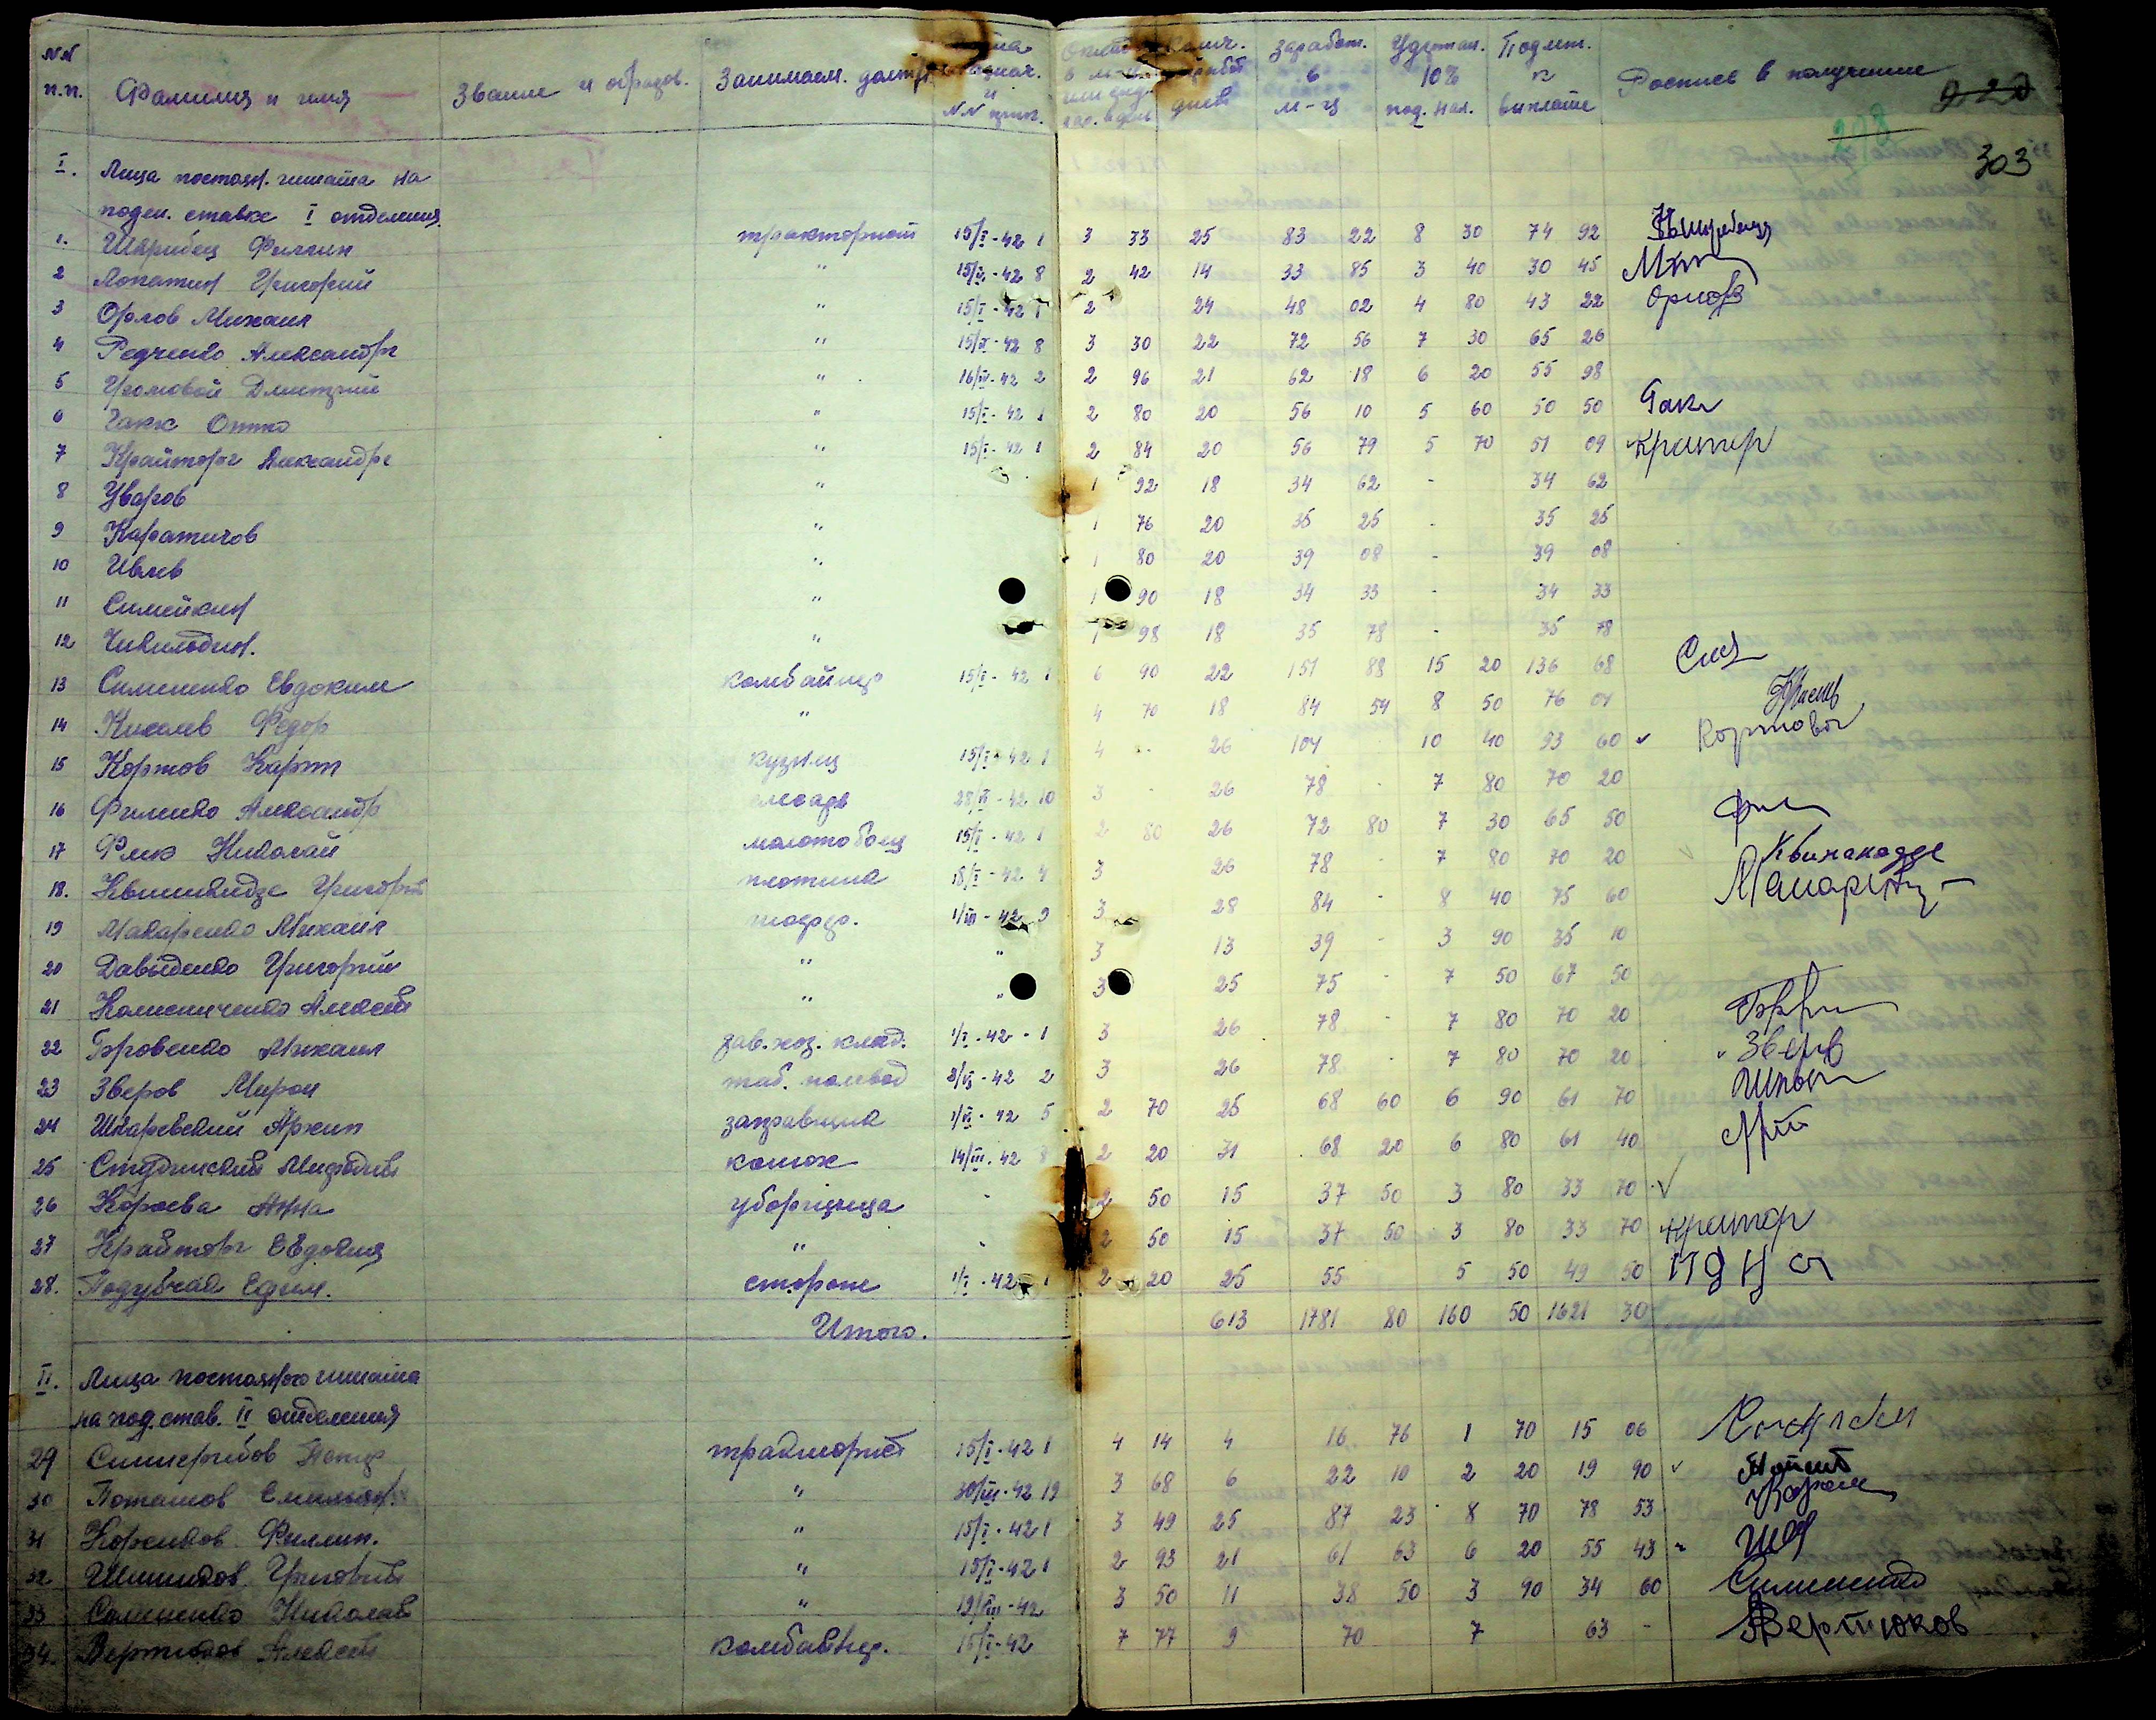 NN п.п. Фамилия и имя Звание и образов. Занимаем. должн. и NN приг. дней заработ. в м-ц Удержан. 10% под. нал. Подлит. к выплате Роспись в получение
220
203
303
I. Лица постаян. штата на
поден. ставке I отделения
1. Шкрибец Филлип тракторист 15/I-42 1 3 33 25 83 22 8 30 74 92
2 Лопатин Григорий " 15/II-42 8 2 42 14 33 85 3 40 30 45
3 Орлов Михаил " 15/I-42 1 2 24 48 02 4 80 43 22 Орлов
4 Редченко Александр " 15/II-42 8 3 30 22 72 56 7 30 65 26
5 Громовой Дмитрий " 16/III-42 2 2 96 21 62 18 6 20 55 98
6 Гакк Отто " 15/I-42 1 2 80 20 56 10 5 60 50 50 Гакк
7 Крайторг Александр " 15/I-42 1 2 84 20 56 79 5 70 51 09
8 Уваров " 1 92 18 34 62 - 34 62
9 Каратичов " 1 76 20 35 25 - 35 25
10 Ивлев " 1 80 20 39 08 - 39 08
11 Симейкин " 1 90 18 34 33 - 34 33
12 Чивилодин. " 1 98 18 35 78 - 35 78
13 Симененко Евдоким комбайнер 15/I-42 1 6 90 22 151 88 15 20 136 68
14 Киселев Федор " 4 70 18 84 54 8 50 76 04
15 Кортов Карп кузнец 15/I-42 1 4 - 26 104 10 40 93 60
16 Филенко Александр слесарь 28/II-42 10 3 - 26 78 - 7 80 70 20
17 Флик Николай молотобоец 15/I-42 1 2 80 26 72 80 7 30 65 50
18. Квиникидзе Григорий плотник 18/I-42 4 3 26 78 - 7 80 70 20
19 Макаренко Михаил шофер. 1/III-42 9 3 28 84 - 8 40 75 60
20 Давыденко Григорий " " 3 13 39 - 3 90 35 10
21 Колисниченко Алексей " " 3 25 75 - 7 50 67 50
22 Бровенко Михаил зав.хоз. клад. 1/I-42-1 3 26 78 - 7 80 70 20
23 Зверов Мирон таб. полевод 2 3 26 78 - 7 80 70 20 Зверв
24 Шкаревский Архип заправщик 5 2 70 25 68 60 6 90 61 70
25 Студинский Мифодий конюх 14/III-42 8 2 20 31 68 20 6 80 61 40
26 Корсева Анна уборщица - 2 50 15 37 50 3 80 33 70
27 Крайторг Евдокия " - 2 50 15 37 50 3 80 33 70
28. Поддубчак Ефим. сторож 1/I-42 1 2 20 25 55 5 50 49 50
Итого. 613 1781 80 160 50 1621 30
II. Лица постоянного штата
на под. став. II отделения
29 Синегрибов Петр тракторист 15/I-42 1 4 14 4 16 76 1 70 15 06
30 Поташов Емильян " 30/III-42 19 3 68 6 22 10 2 20 19 90
31 Корсиков Филлип. " 15/I-42 1 3 49 25 87 23 8 70 78 53
32 Шишиков Григорий " 15/I-42 1 2 93 21 61 63 6 20 55 43
33 Симененко Николай " 19/VIII-42 3 50 11 38 50 3 90 34 60 Симененко
34. Вертюков Алексей комбайнер. 15/I-42 7 77 9 70 7 63 - Вертюков